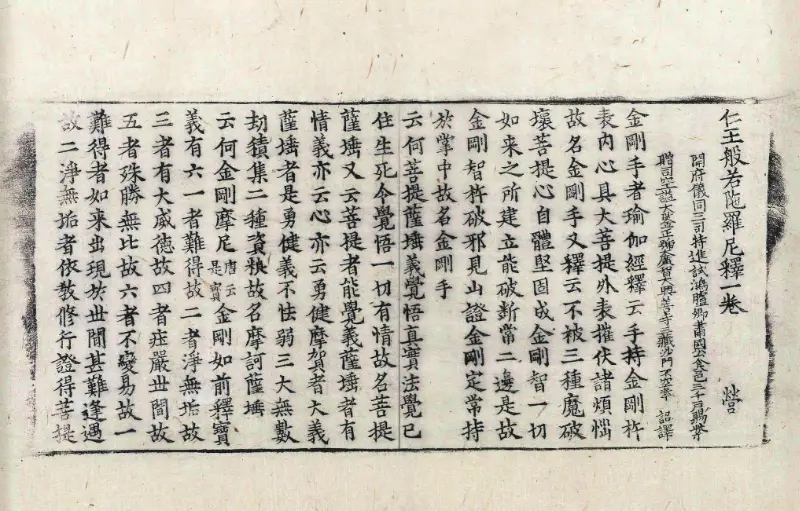 仁王般若陀羅尼釋一卷　營
開府儀同三司特進試鴻臚卿肅國公食邑三千戶賜紫
贈司空謚大鑒正號大廣智大興善寺三藏沙門不空奉　詔譯
金剛手者瑜伽經釋云手持金剛杵
表內心具大菩提外表摧伏諸煩惱
故名金剛手又釋云不被三種魔破
壞菩提心自體堅固成金剛智一切
如來之所建立能破斷常二邊是故
金剛智杵破邪見山證金剛定常持
於掌中故名金剛手
云何菩提薩埵義覺悟真實法覺已
住生死今覺悟一切有情故名菩提
薩埵又云菩提者能覺義薩埵者有
情義亦云心亦云勇健摩賀者大義
薩埵者是勇健義不怯弱三大無數
劫積集二種資粮故名摩訶薩埵
云何金剛摩尼唐云是寶金剛如前釋寶
義有六一者難得故二者淨無垢故
三者有大威德故四者莊嚴世間故
五者殊勝無比故六者不變易故一
難得者如來出現於世間甚難逢遇
故二淨無垢者依教修行證得菩提